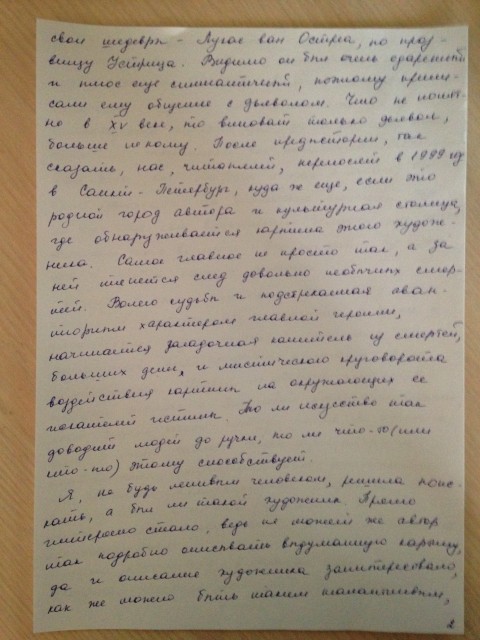 свои шедевры - Лукас ван Остреа, по проз-
вищу Устрица. Видимо он был очень одаренный
и плюс еще симпатичный, поэтому припи-
сали ему общение с дьяволом. Что не понят-
но в XV веке, то виноват только демон,
больше некому. После предыстории, так
сказать, нас, читателей, переносят в 1999 год
в Санкт-Петербург, куда же еще, если это
родной город автора и культурная столица,
где обнаруживается картина этого худож-
ника. Самое главное не просто так, а за
ней тянется след довольно необычных смер-
тей. Волею судьбы и подстрекаемая аван-
тюрным характером главной героини,
начинается загадочная канитель из смертей,
больших денег и мистического круговорота
воздействия картин на окружающих ее
искателей истины. То ли искусство так
доводит людей до ручки, то ли что-то (или
кто-то) этому способствует.
Я, не будь ленивым человеком, решила поис-
кать, а был ли такой художник. Прямо
интересно стало, ведь не может же автор
так подробно описывать выдуманную картину,
да и описание художника заинтересовало,
как же можно быть таким талантливым,
2